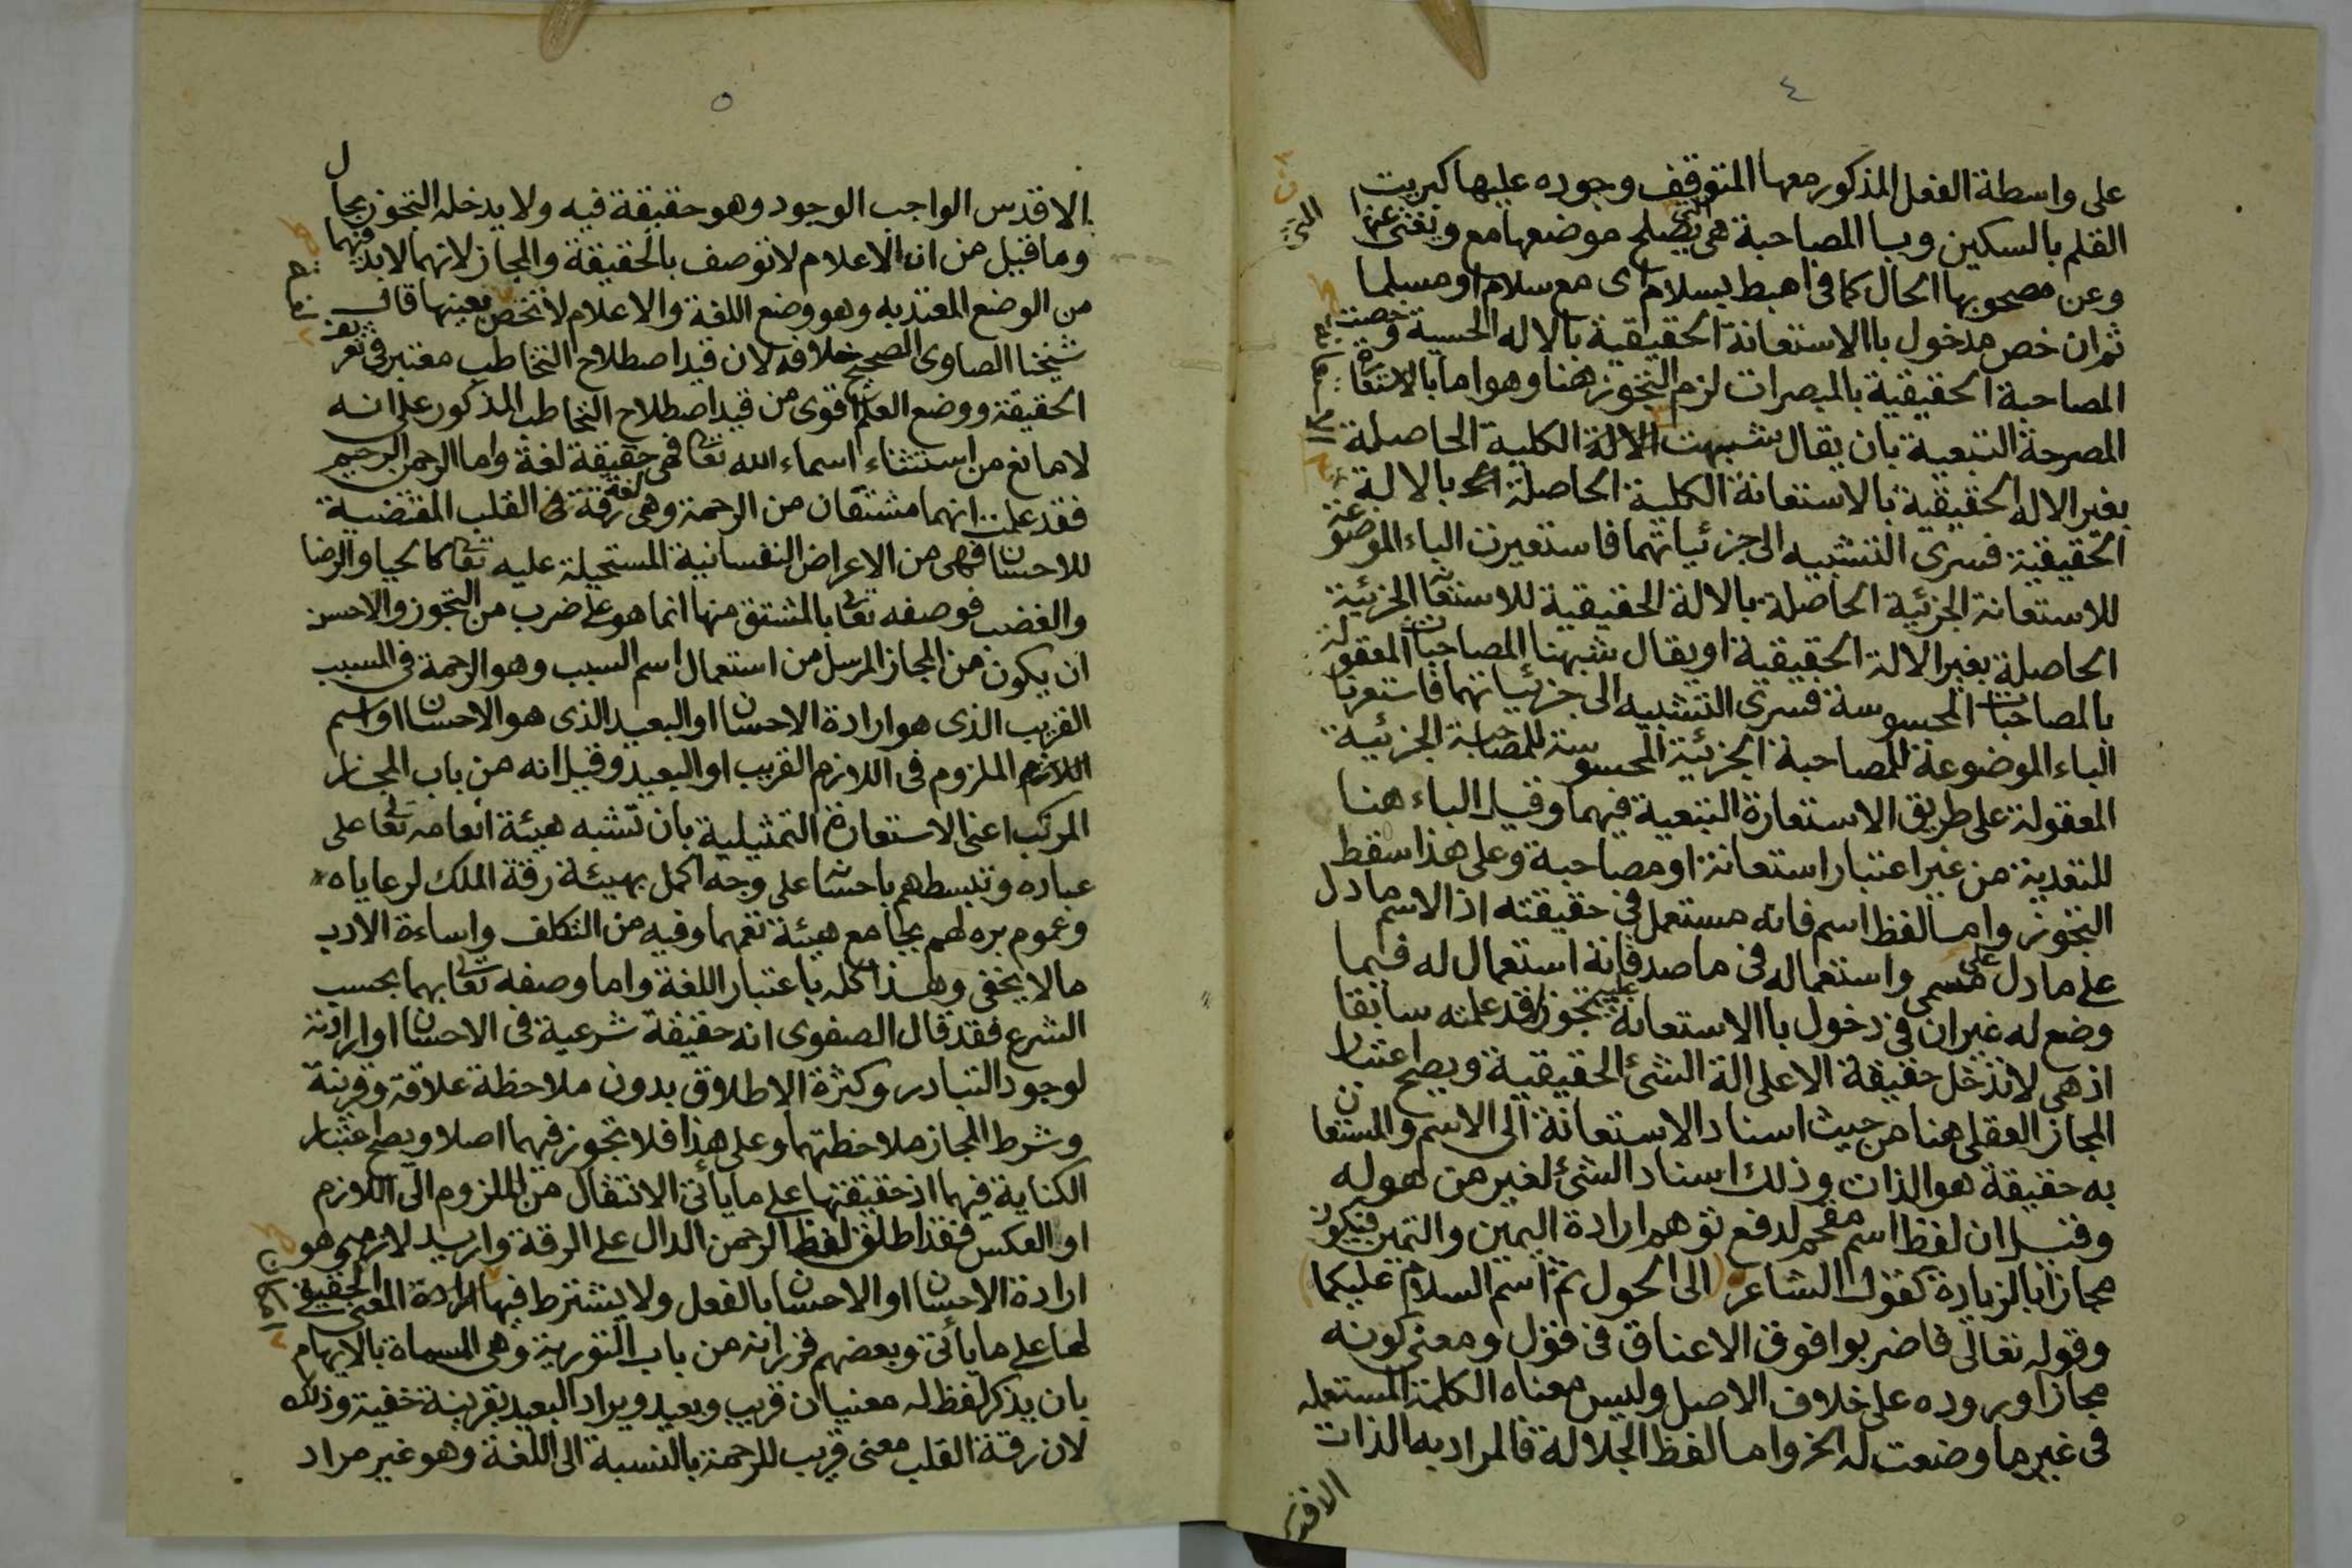 ٤
على واسطة الفعل المذكور معها المتوقف وجوده عليها كبريت
القلم بالسكين وبا المصاحبة هى التى يصلح موضعها مع ويغنى عنها
وعن مصحوبها الحال كما فى اهبط بسلام اى مع سلام او مسلما
ثم ان خص مدخول باالاستعانة الحقيقية بالاله الحسية وخصت
المصاحبة الحقيقية بالمبصرات لزم التجوز هنا وهو اما بالاستعارة
المصرحة التبعية بان يقال شبهت الالة الكلية الحاصلة
بغير الاله الحقيقية بالاستعانة الكلية الحاصلة بالالة
الحقيقية فسرى التشبيه الى جزئياتهما فاستعيرت الباء الموضوعة
للاستعانة الجزئية الحاصلة بالالة الحقيقية للاستعانة الجزئية
الحاصلة بغير الالة الحقيقية او يقال شبهنا المصاحبات المعقولة
بالمصاحبات المحسوسة فسرى التشبيه الى جزئياتهما فاستعرنا
الباء الموضوعة للمصاحبة الجزئية المحسوسة للمصاحبة الجزئية
المعقولة على طريق الاستعارة التبعية فيهما وقيل الباء هنا
للتعدية من غير اعتبار استعانة او مصاحبة وعلى هذا سقط
التجوز واما لفظ اسم فانه مستعمل فى حقيقته اذ الاسم ما دل
على ما دل على مسمى واستعماله فى ماصدقاته استعمال له فيما
وضع له غير ان فى دخول باالاستعانة عليه تجوزا قد علمته سابقا
اذ هى لا تدخل حقيقة الا على الة الشئ الحقيقية ويصح اعتبار
المجاز العقلى هنا من حيث اسناد الاستعانة الى الاسم والمستعان
به حقيقة هو الذات وذلك اسناد الشئ لغير من هو له
وقيل ان لفظ اسم مقحم لدفع توهم ارادة اليمين والتيمن فيكون
مجازا بالزيادة كقول الشاعر الى الحول ثم اسم السلام عليكما
وقوله تعالى فاضربوا فوق الاعناق فى قول ومعنى كونه
مجازا وروده على خلاف الاصل وليس معناه الكلمة المستعمله
فى غير ما وضعت له الخ واما لفظ الجلالة فالمراد به الذات
الاقدس
٥
الاقدس الواجب الوجود وهو حقيقة فيه ولا يدخله التجوز بحال
وما قيل من ان الاعلام لا توصف بالحقيقة والمجاز لانهما لابد فيهما
من الوضع المعتد به وهو وضع اللغة والاعلام لا تختص بعينها قال
شيخنا الصاوى الصحيح خلافه لان قيد اصطلاح التخاطب معتبر فى تعريف
الحقيقة ووضع العلم اقوى من قيد اصطلاح التخاطب المذكور على انه
لا مانع من استثناء اسماء الله تعالى فهى حقيقة لغة واما الرحمن الرحيم
فقد علمت انهما مشتقان من الرحمة وهى لغة رقة فى القلب المقتضية
للاحسان فهى من الاعراض النفسانية المستحيلة عليه تعالى كالحيا والرضا
والغضب فوصفه تعالى بالمشتق منها انما هو على ضرب من التجوز والاحسن
ان يكون من المجاز المرسل من استعمال اسم السبب وهو الرحمة فى المسبب
القريب الذى هو ارادة الاحسان او البعيد الذى هو الاحسان او اسم
الملزوم فى اللازم القريب او البعيد وقيل انه من باب المجاز
المركب اعنى الاستعارة التمثيلية بان تشبه هيئة انعامه تعالى على
عباده وتبسطهم باحسانه على وجه اكمل بهيئة رقة الملك لرعاياه
وعموم بره لهم بجامع هيئة تعمهما وفيه من التكلف واساءة الادب
ما لا يخفى وهذا كله باعتبار اللغة واما وصفه تعالى بهما بحسب
الشرع فقد قال الصفوى انه حقيقة شرعية فى الاحسان او ارادته
لوجود التبادر وكثرة الاطلاق بدون ملاحظة علاقة وقرينة
وشرط المجاز ملاحظتهما وعلى هذا فلا تجوز فيهما اصلا ويصح اعتبار
الكناية فيهما اذ حقيقتها على ما يأتى الانتقال من الملزوم الى اللازم
او العكس فقد اطلق لفظ الرحمن الدال على الرقة واريد لازمه وهو
ارادة الاحسان او الاحسان بالفعل ولا يشترط فيها ارادة المعنى الحقيقى
لها على ما يأتى وبعضهم قرر انه من باب التورية وهى المسماة بالايهام
بان يذكر لفظ له معنيان قريب وبعيد ويراد البعيد بقرينة خفية وذلك
لان رقة القلب معنى قريب للرحمة بالنسبة الى اللغة وهو غير مراد